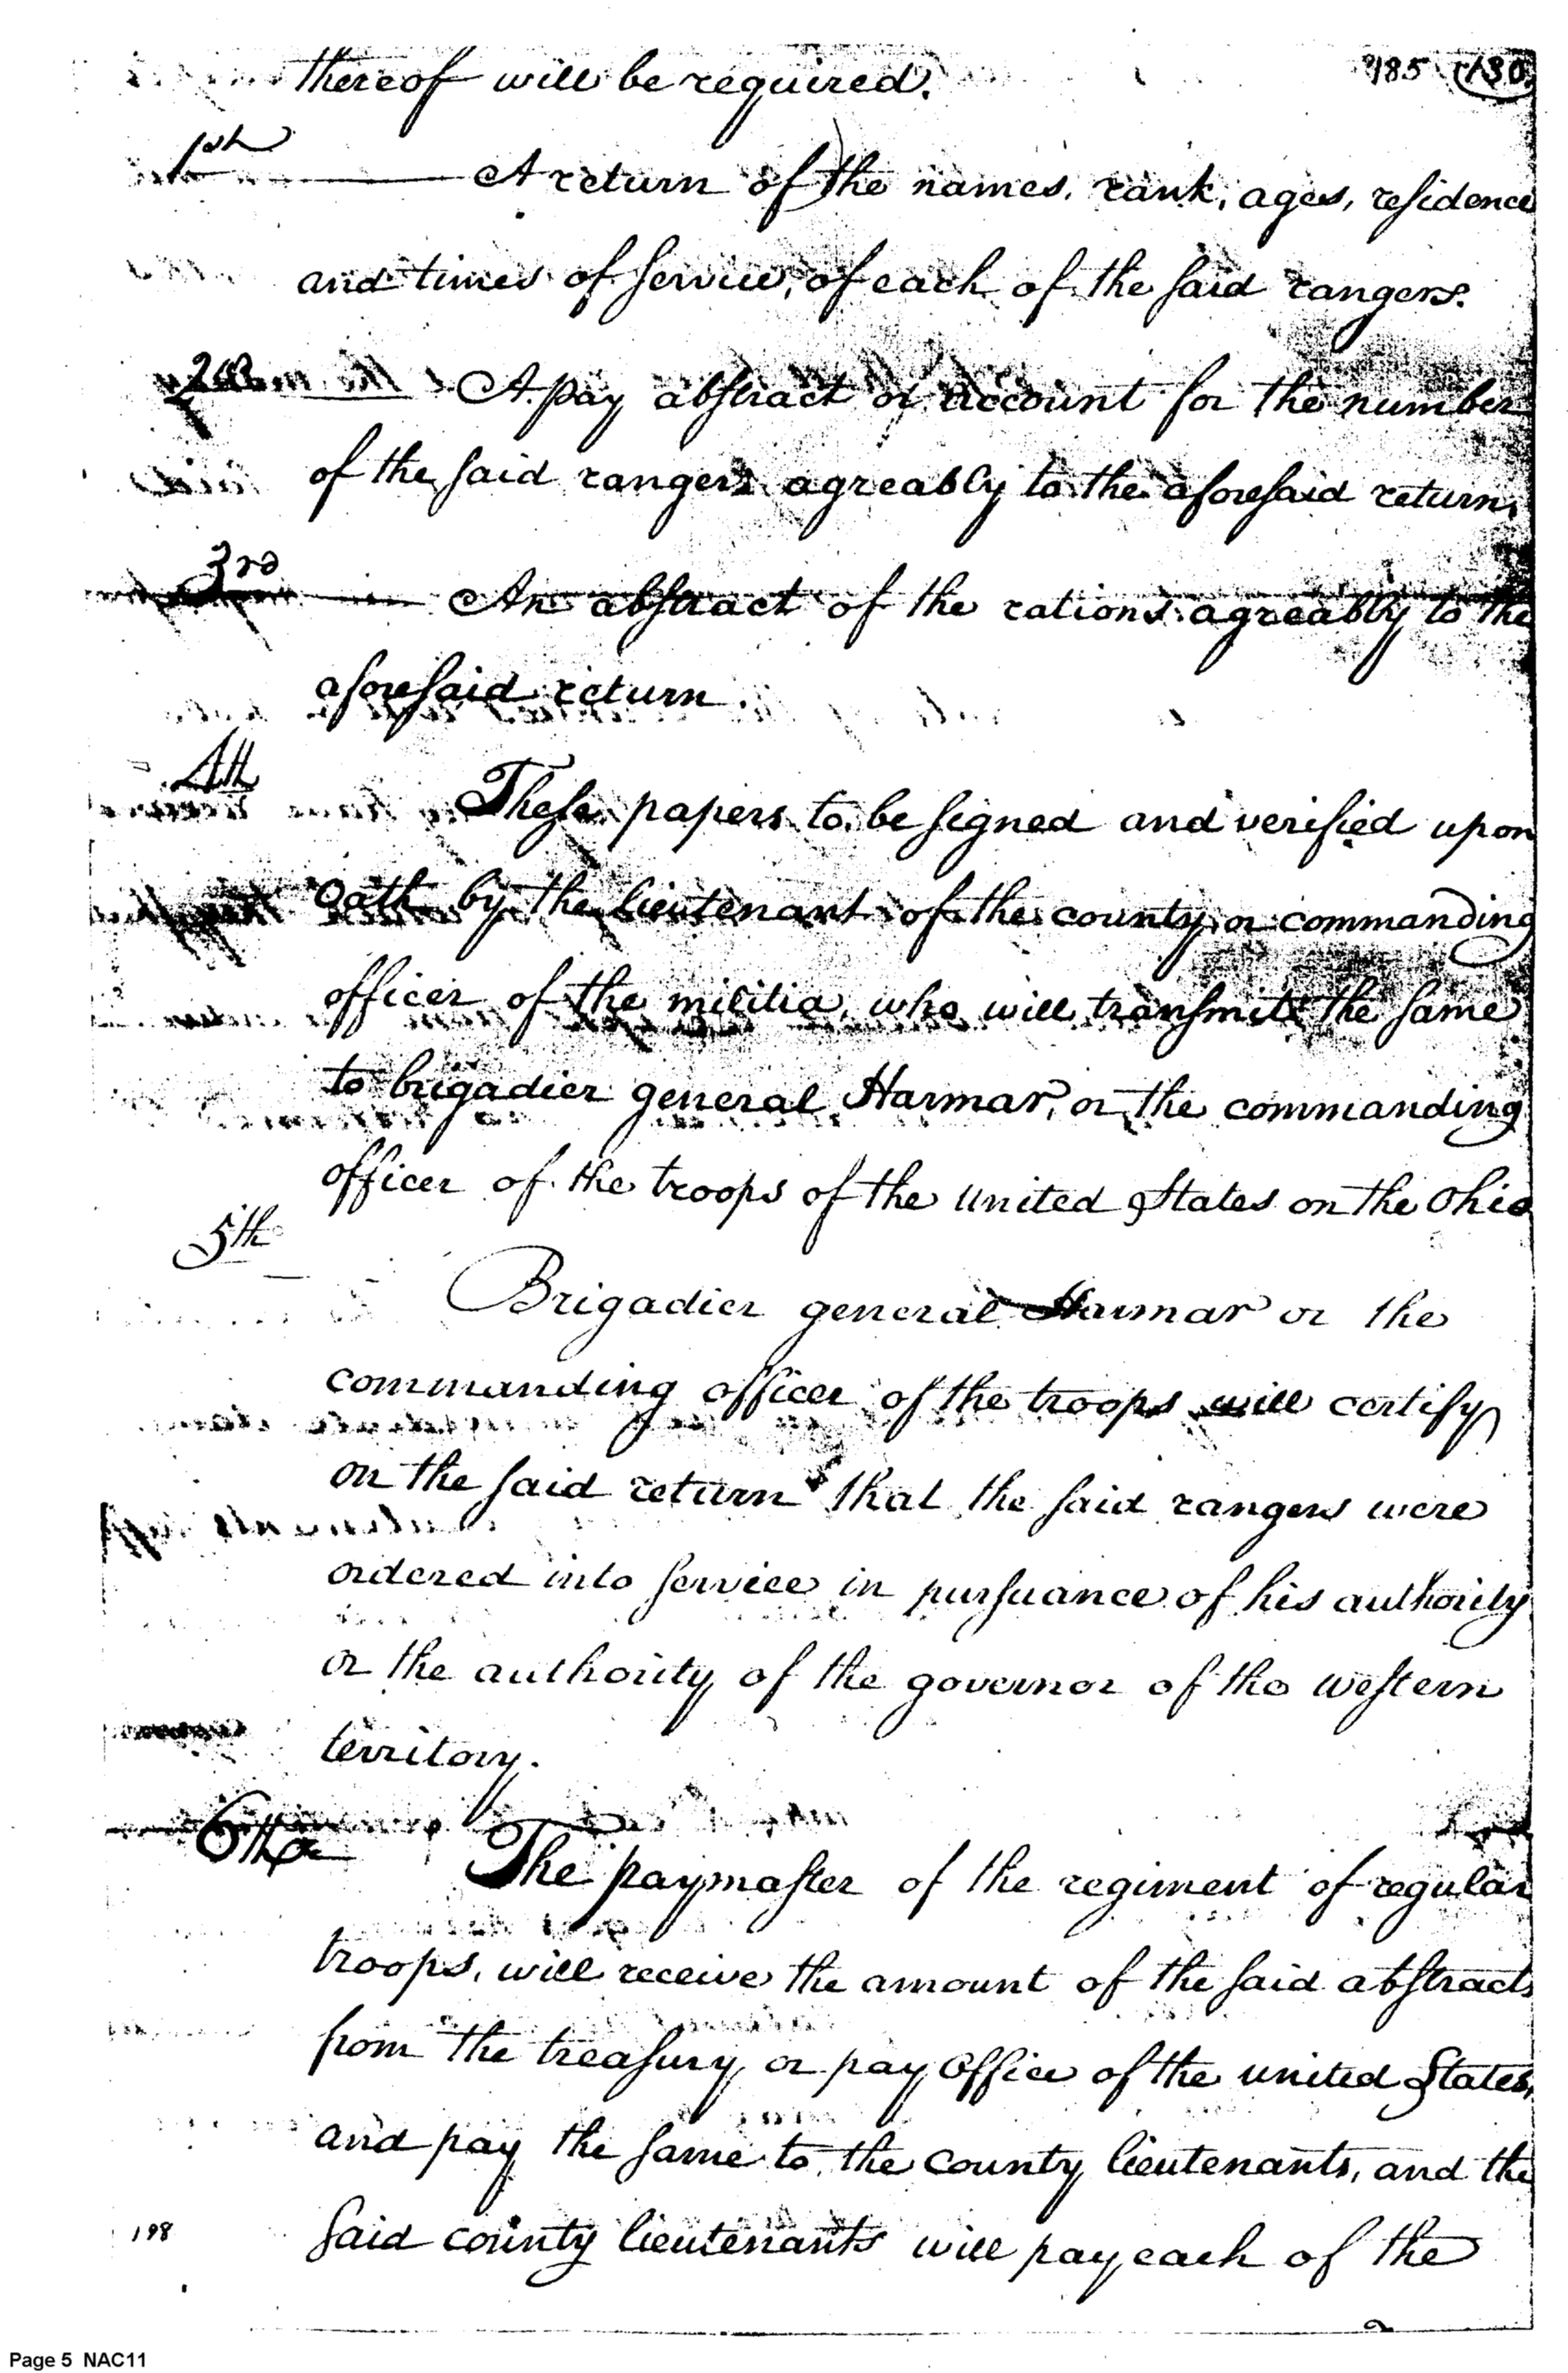 185 130
thereof will be required.
1st
A return of the names, rank, ages, residence
and times of service, of each of the said rangers.
2d
A pay abstract or account for the number
of the said rangers agreably to the aforesaid return.
3rd
An abstract of the rations agreably to the
aforesaid return.
4th
These papers to be signed and verified upon
oath by the lieutenant of the county or commanding
officer of the militia, who will transmit the same
to brigadier general Harmar, or the commanding
officer of the troops of the united States on the Ohio
5th
Brigadier general Harmar or the
commanding officer of the troops will certify
on the said return that the said rangers were
ordered into service in pursuance of his authority
or the authority of the governor of the western
territory.
6th
The paymaster of the regiment of regular
troops, will receive the amount of the said abstracts
from the treasury or pay office of the united States,
and pay the same to the county lieutenants, and the
said county lieutenants will pay each of the
198
Page 5 NAC11